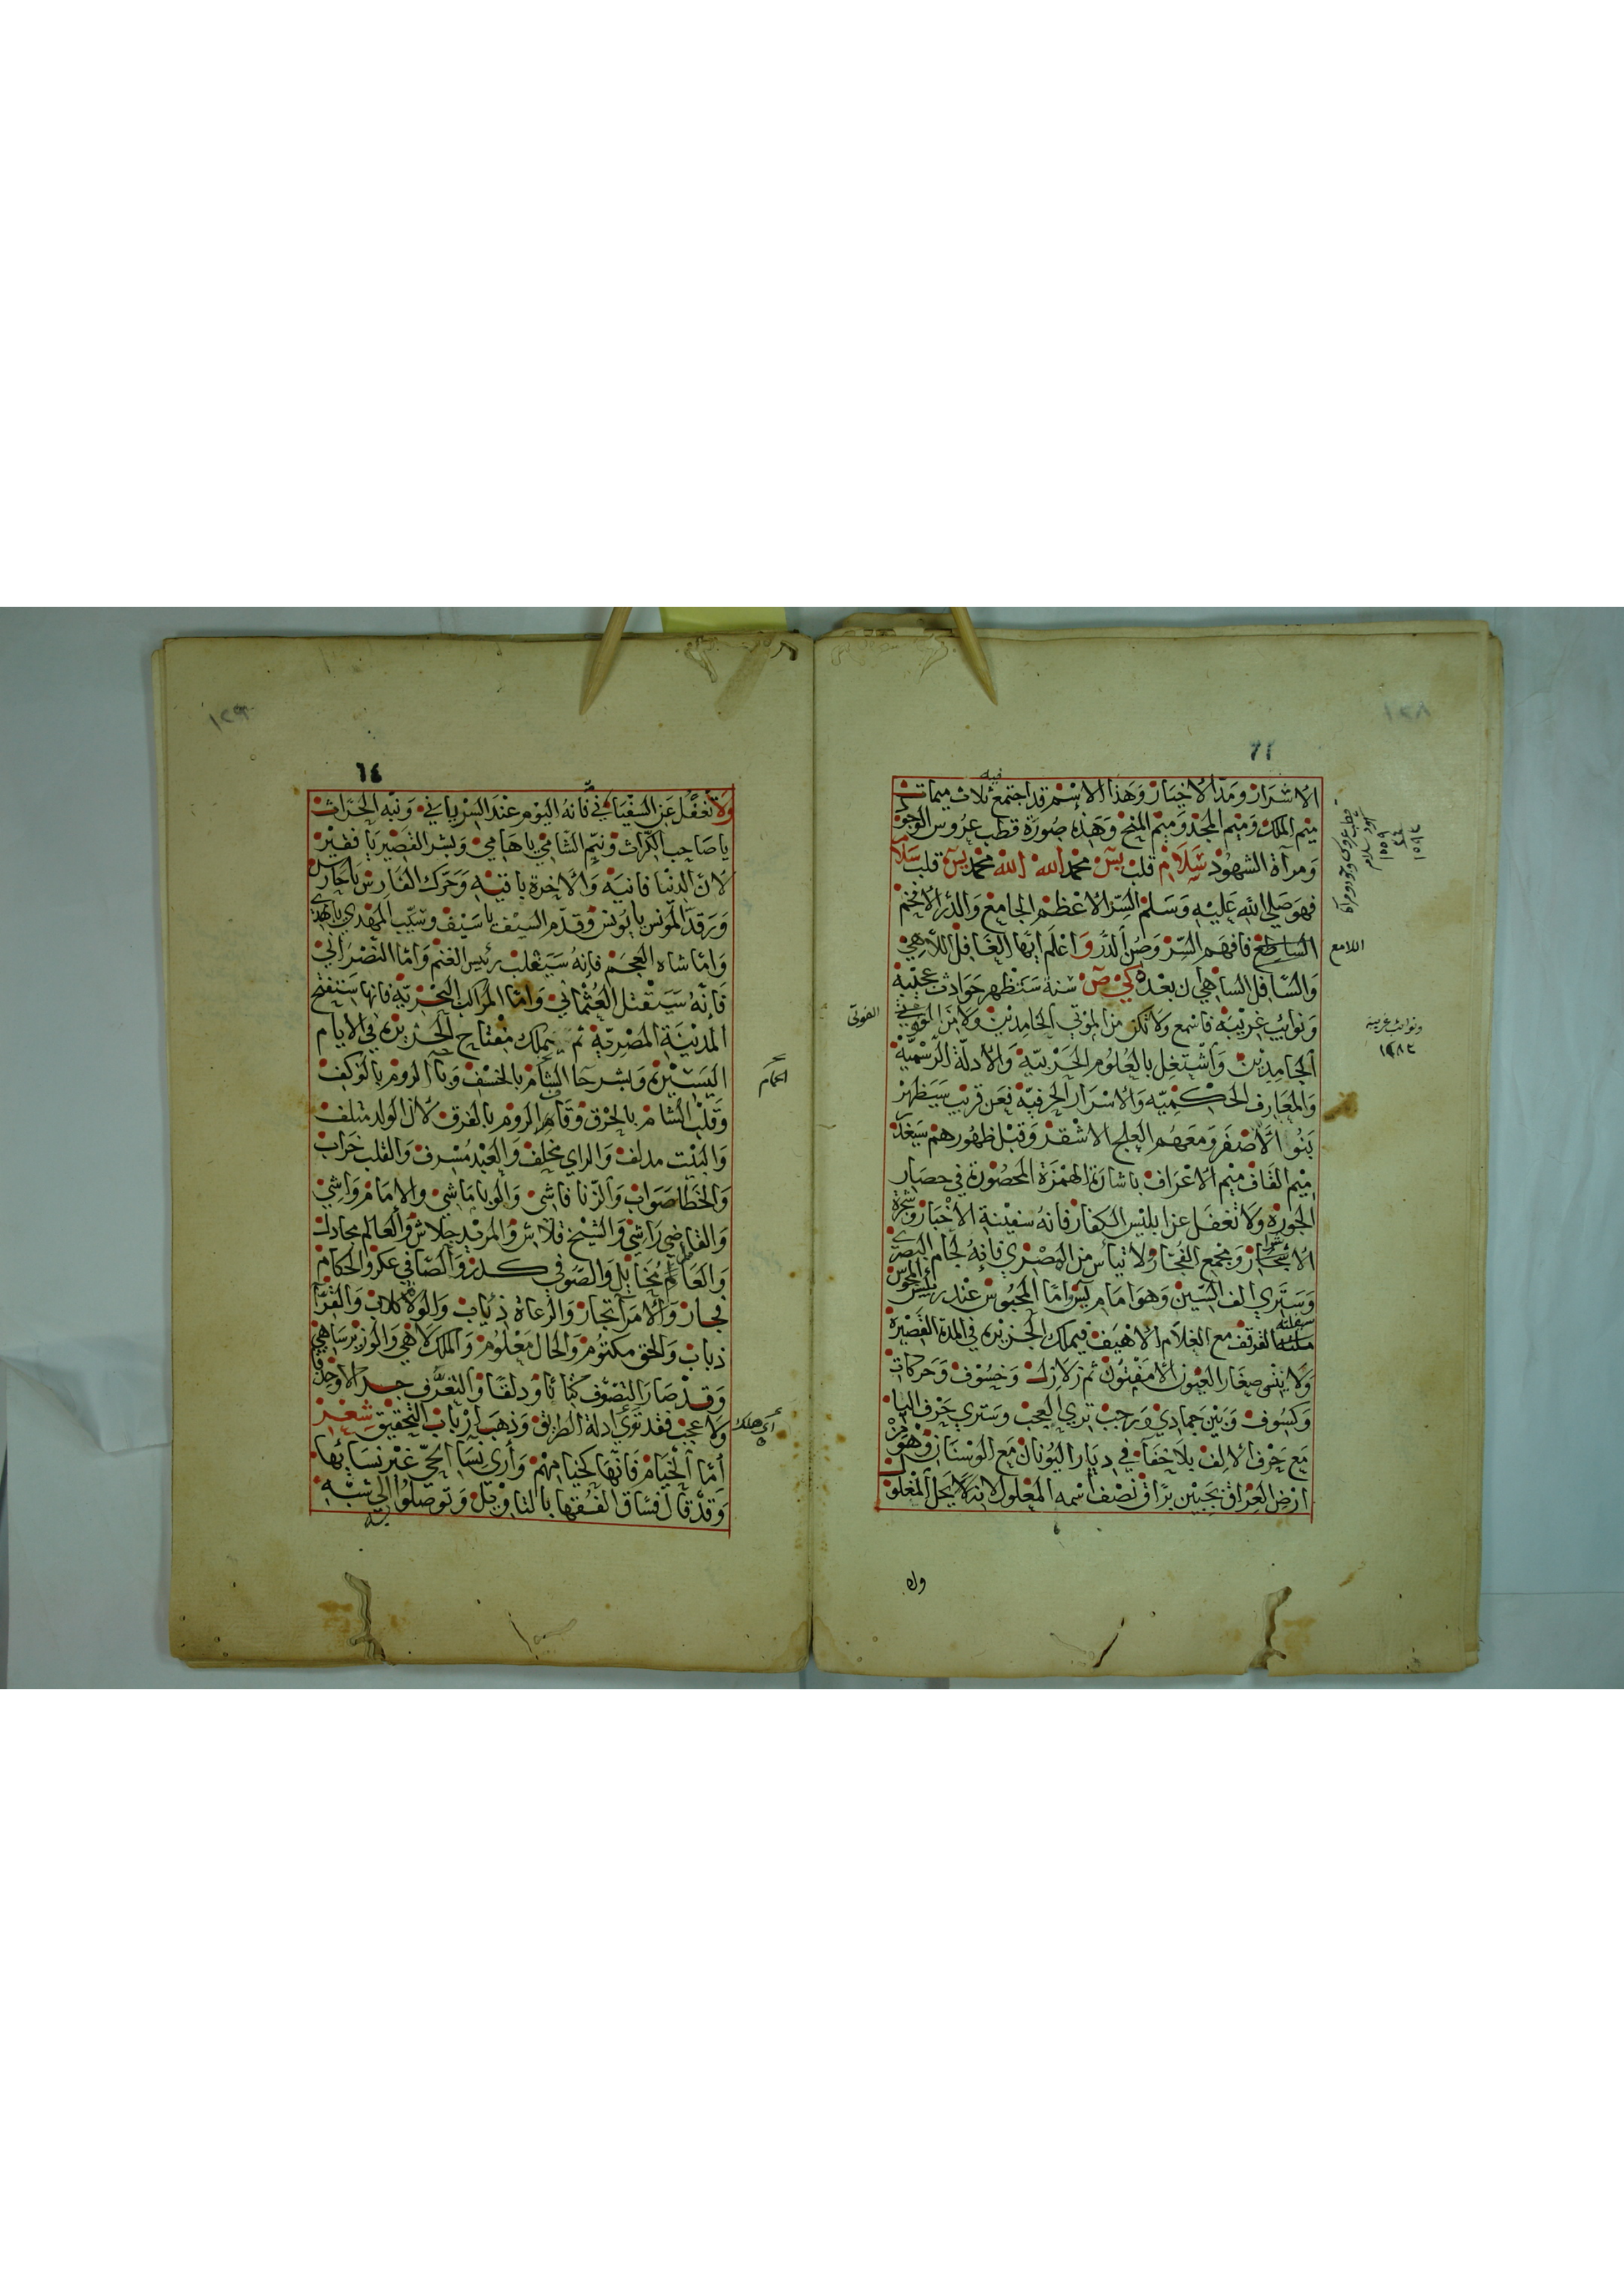 الاشرار ومد الاخيار وهذا الاسم قد اجتمع فيه ثلاث ميمات
ميم الملك وميم المجد وميم المنح وهذه صورة قطب عروس الوجود
ومرآة الشهود سلام قلب يس محمد الله الله محمد يس قلب سلام
فهو صلي الله عليه وسلم السر الاعظم الجامع والدر الافخم
الساطع فافهم السر وصن الدر واعلم ايها الغافل اللاهي
والسافل الساهي ان بعده سنة ستظهر حوادث عجيبة
ونوايب غريبة فاسمع ولا تكن من الموتي الخامدين ولا من
الجامدين واشتغل بالعلوم الحربية والادلة الرسمية
والمعارف الحكمية والاسرار الحرفية فعن قريب سيظهر
بنوا الاصفر ومعهم العلج الاشقر وقبل ظهورهم
ميم القاف ميم الاعراف باشارة الهمزة المحصورة في حصار
الجوزه ولا تغفل عن ابليس الكفار فانه سفينة الاخبار وشجرة
ومجمع الفجار ولا تياس من المصري فانه لجام البصري
وستري الف السين وهو امام يس واما المحبوس عند رئيس المجوس
القرقف مع الغلام الاهيف فيملك الجزيرة في المدة القصيرة
ولا ينسي صغار العيون الامفتون ثم زلازل وخسوف وحركات
وكسوف وبين جمادي ورجب تري العجب وستري حرف اليا
مع حرف الالف بلا خفاء في ديار اليونان مع الوسنان وهو من
ارض العراق بجبين براق نصف اسمه المعلول لانه لا يحل المغلول
اللامع
ونوائب غريبة
١٢٨٢
ولا
٦٤
ولا تغفل عن السفياني فانه اليوم عند السرياني ونبه الحراث
يا صاحب الكراث ونيم الشامي يا هامي وبشر القصير يا فقير
لان الدنيا فانية والاخرة باقية وحرك الفارس يا حارس
ورقد المونس يا يونس وقدم السيف يا سيف وسيب المهدي يا مهدي
واما شاه العجم فانه سيغلب رئيس الغنم واما النصراني
فانه سيقتل العثماني واما المراكب البحرية فانها ستفتح
المدينة المصرية ثم يملك مفتاح الجزيرة في الايام
اليسيرة وبشر حا الشام بالخسف وباء الروم بالوكف
وقلب الشام بالحرق وقاهر الروم بالغرق لان الولد متلف
والبنت مدلف والراي مخلف والعبد مسرف والقلب خراب
والخطا صواب والزنا فاشي والوبا ماشي والامام واشي
والقاضي راشي والشيخ قلاش والمريد جلاش والعالم مجادل
والعامل مخايل والصوفي كدر والصافي عكر والحكام
فجار والامرآ تجار والرعاة ذياب والولاة كلاب والقرآ
ذباب والحق مكتوم والحال معلوم والملك لاهي والوزير ساهي
وقد صار التصوف ودلقا والتعرف
ولا عجب فقد توي ادلة الطريق وذهب ارباب التحقيق شعر
اما الخيام فانها كخيامهم وأري نسا الحي غير نسائها
وقد قال فساق الفقها بالتاويل وتوصلوا الي شبه
اي هلك